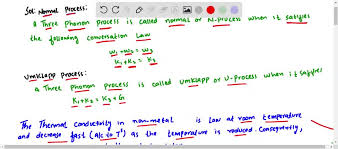 Sol: Normal Process:
a Three phonon process is called normal or N-process when it satyfies
the following conversation Law
w₁ + w₂ = w₃
K₁ + K₂ = K₃
Umklapp Process:
a Three Phonon process is called Umklapp or U-process when it satyfies
K₁ + K₂ = K₃ + G
The Thermal conductivity in non-metal is low at room temperature
and decrease fast as the temperature is reduced. Consequently,